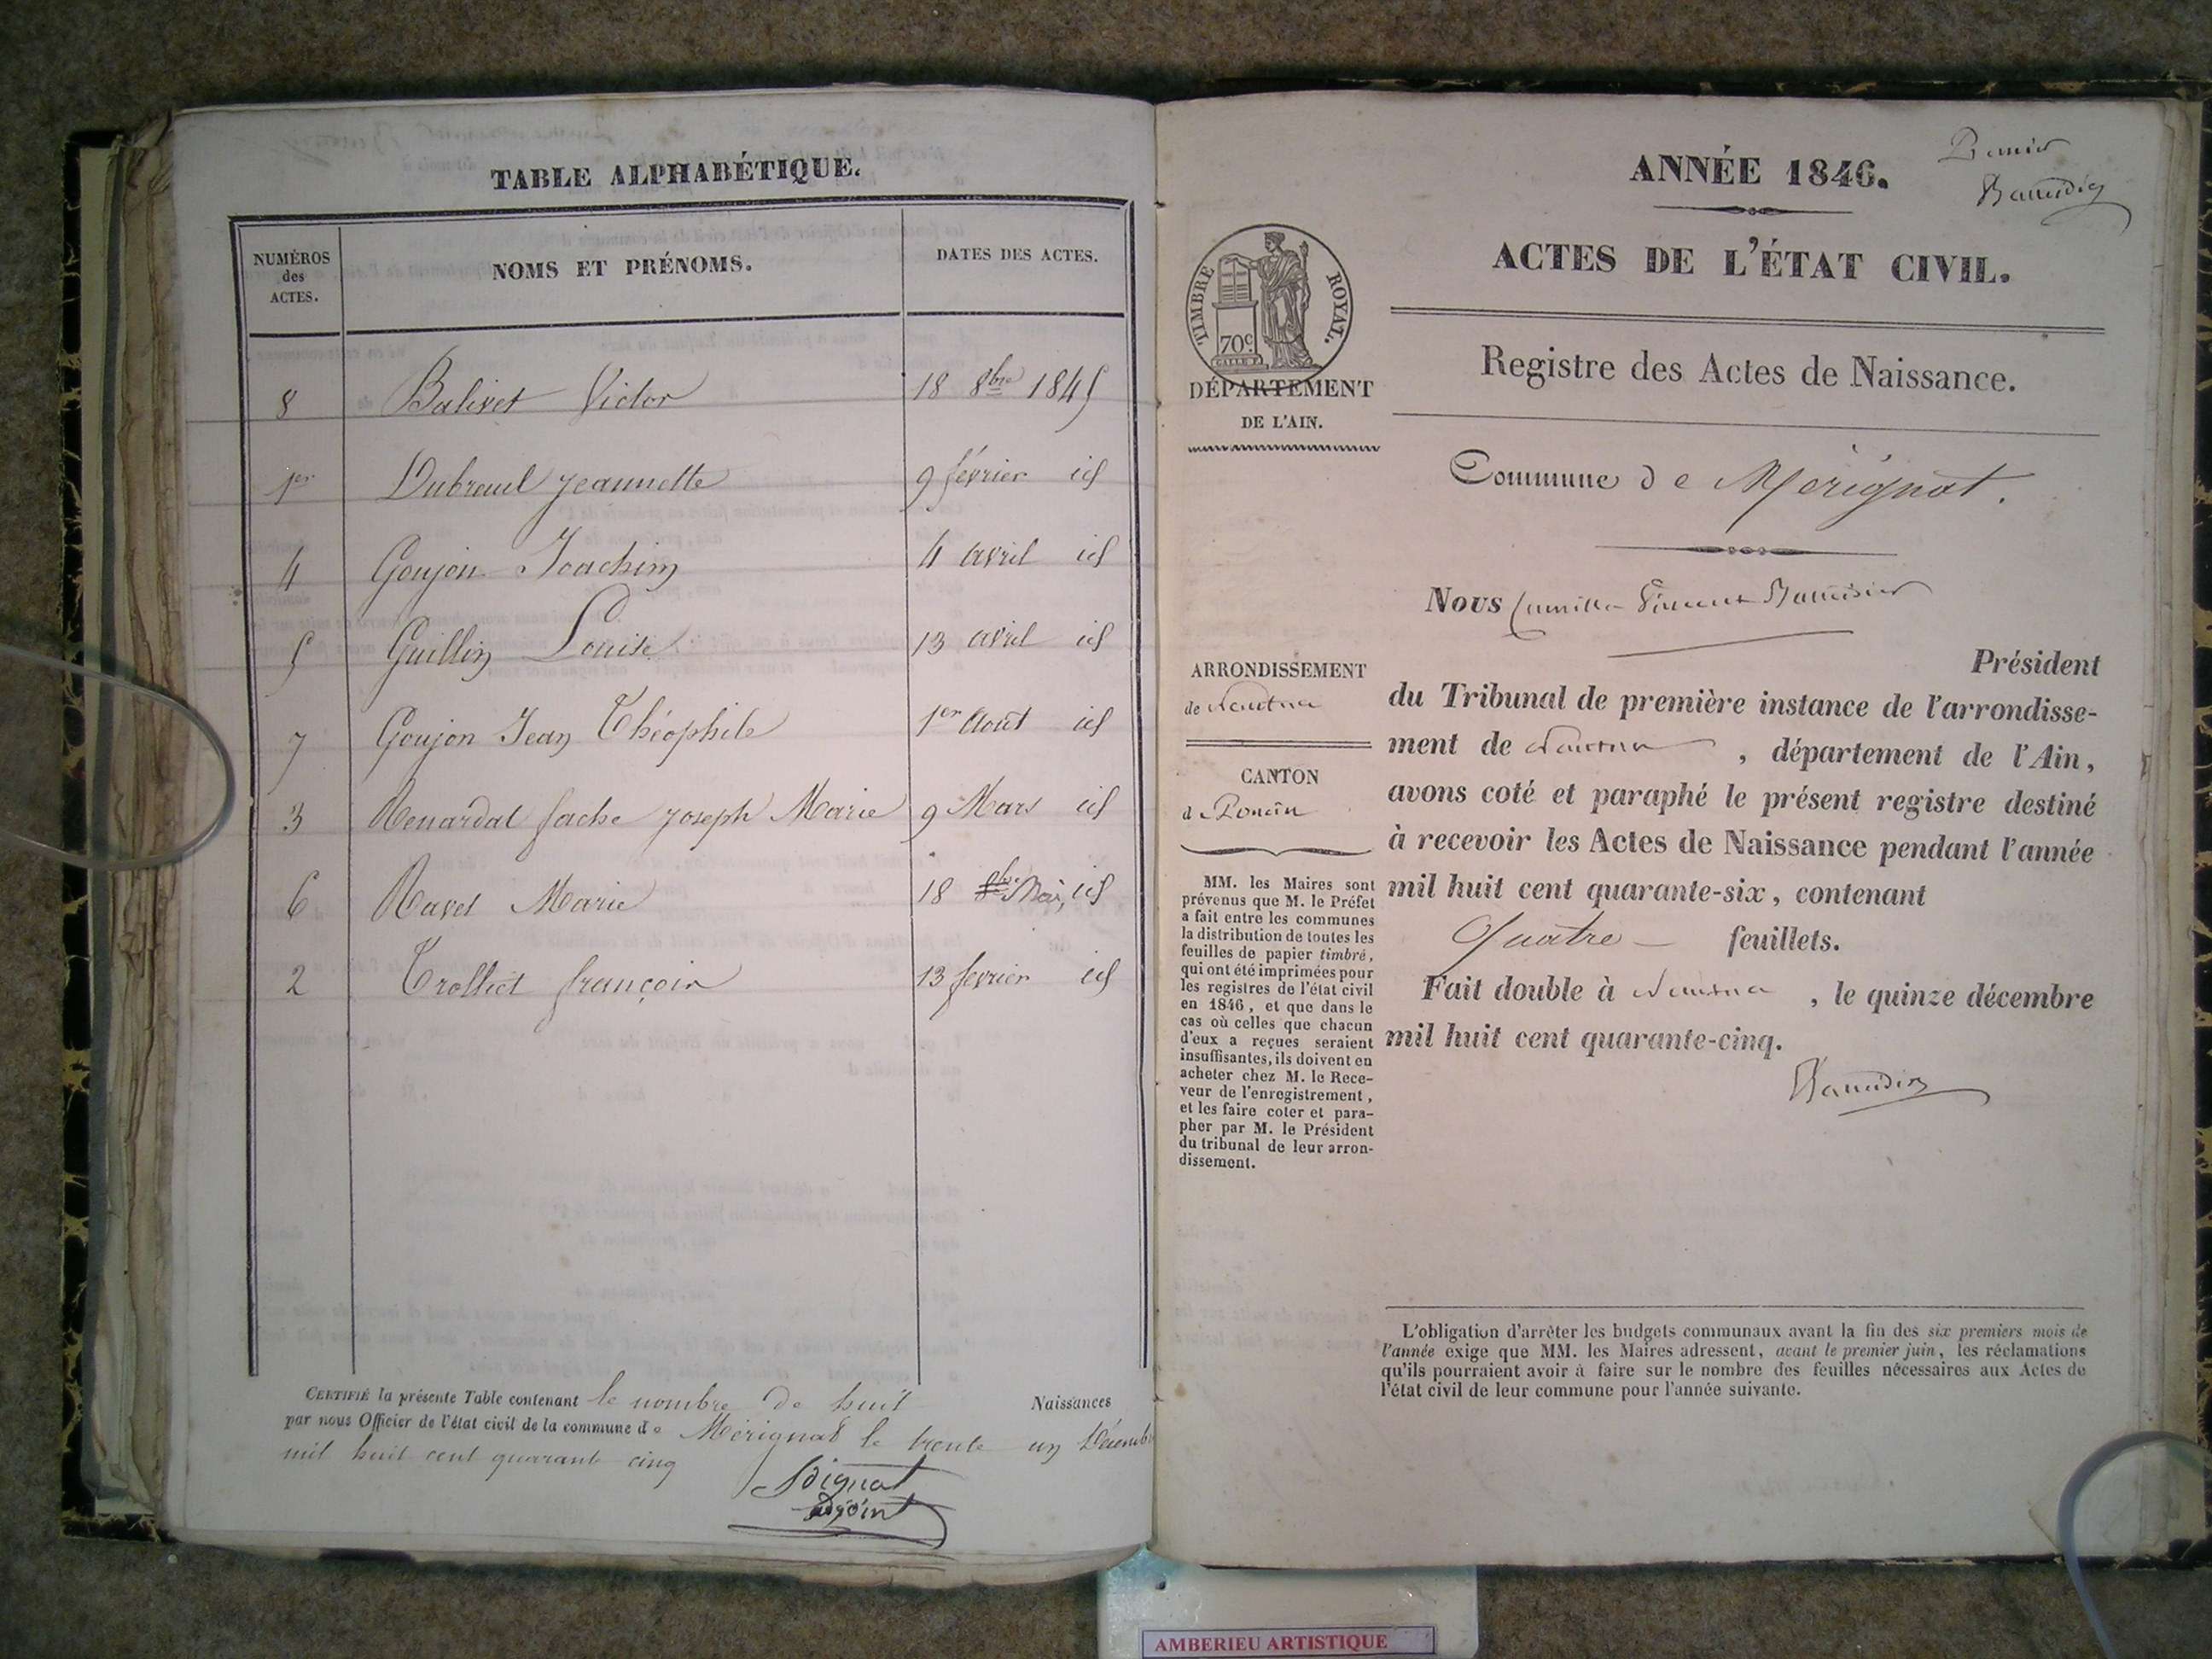 TABLE ALPHABÉTIQUE.
NUMÉROS
des
ACTES.
NOMS ET PRÉNOMS.
DATES DES ACTES.
8 Balivet Victor 18 8bre 1845
1er Dubreuil Jeannette 9 février id
4 Goujon Joachim 4 avril id
5 Guillin Louise 13 avril id
7 Goujon Jean Théophile 1er Aout id
3 Renardat fache Joseph Marie 9 Mars id
6 Ravet Marie 18 Mai, id
2 Trolliet françois 13 fevrier id
CERTIFIÉ la présente Table contenant le nombre de huit Naissances
par nous Officier de l'état civil de la commune de Mérignat le trente un Décembre
mil huit cent quarante cinq
adjoint
ANNÉE 1846.
Premier
ACTES DE L'ÉTAT CIVIL.
TIMBRE ROYAL.
70c
DÉPARTEMENT
DE L'AIN.
Registre des Actes de Naissance.
Commune de Mérignat.
Nous
Président
ARRONDISSEMENT
de Nantua
du Tribunal de première instance de l'arrondisse-
ment de Nantua, département de l'Ain,
CANTON
de Poncin
avons coté et paraphé le présent registre destiné
à recevoir les Actes de Naissance pendant l'année
mil huit cent quarante-six, contenant
Quatre feuillets.
Fait double à Nantua, le quinze décembre
mil huit cent quarante-cinq.
MM. les Maires sont
prévenus que M. le Préfet
a fait entre les communes
la distribution de toutes les
feuilles de papier timbré,
qui ont été imprimées pour
les registres de l'état civil
en 1846, et que dans le
cas où celles que chacun
d'eux a reçues seraient
insuffisantes, ils doivent en
acheter chez M. le Rece-
veur de l'enregistrement,
et les faire coter et para-
pher par M. le Président
du tribunal de leur arron-
dissement.
L'obligation d'arrêter les budgets communaux avant la fin des six premiers mois de
l'année exige que MM. les Maires adressent, avant le premier juin, les réclamations
qu'ils pourraient avoir à faire sur le nombre des feuilles nécessaires aux Actes de
l'état civil de leur commune pour l'année suivante.
AMBERIEU ARTISTIQUE